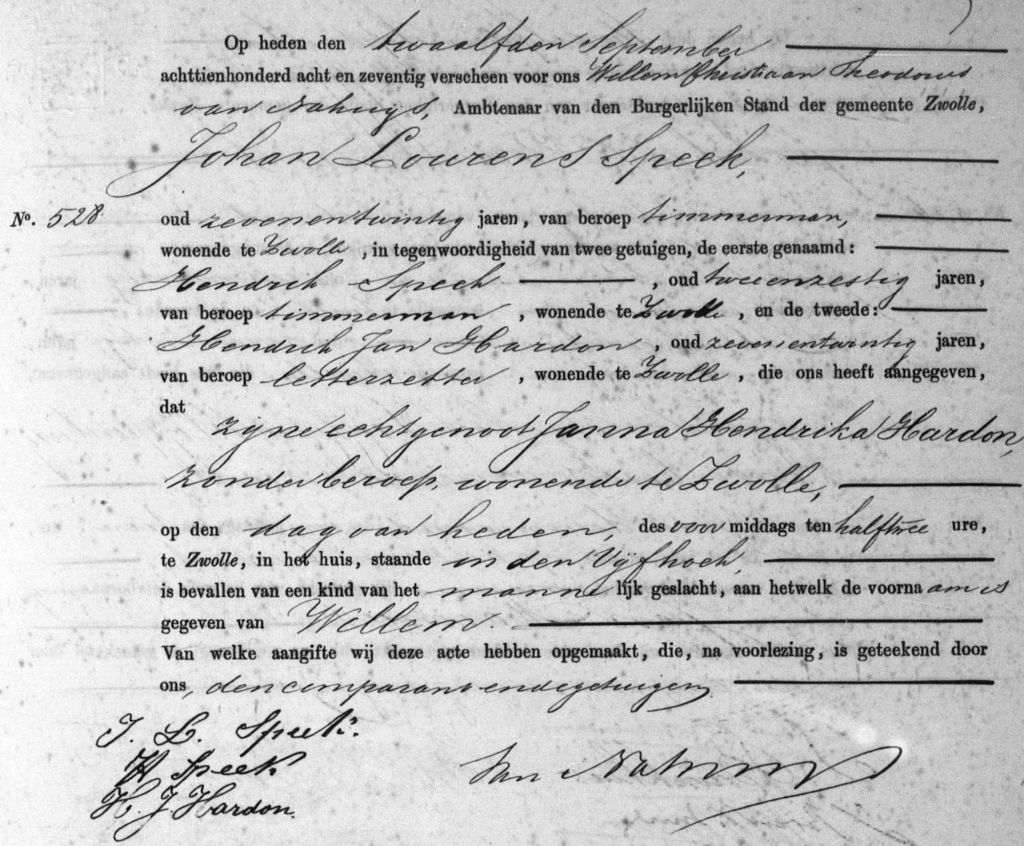 Op heden den twaalfden September
achttienhonderd acht en zeventig verscheen voor ons Willem Christiaan Theodorus
van Nahuys, Ambtenaar van den Burgerlijken Stand der gemeente Zwolle,
Johan Lourens Speek,
No. 528. oud zevenentwintig jaren, van beroep timmerman,
wonende te Zwolle, in tegenwoordigheid van twee getuigen, de eerste genaamd:
Hendrik Speek, oud tweeenzestig jaren,
van beroep timmerman, wonende te Zwolle, en de tweede:
Hendrik Jan Hardon, oud zevenentwintig jaren,
van beroep letterzetter, wonende te Zwolle, die ons heeft aangegeven,
dat
zijne echtgenoot Janna Hendrika Hardon,
zonder beroep, wonende te Zwolle,
op den dag van heden, des voor middags ten half twee ure,
te Zwolle, in het huis, staande in den Vijfhoek,
is bevallen van een kind van het mannelijk geslacht, aan hetwelk de voornaam is
gegeven van Willem
Van welke aangifte wij deze acte hebben opgemaakt, die, na voorlezing, is geteekend door
ons, den comparant en de getuigen
J. L. Speek.
H Speek
H. J. Hardon.
Van Nahuys